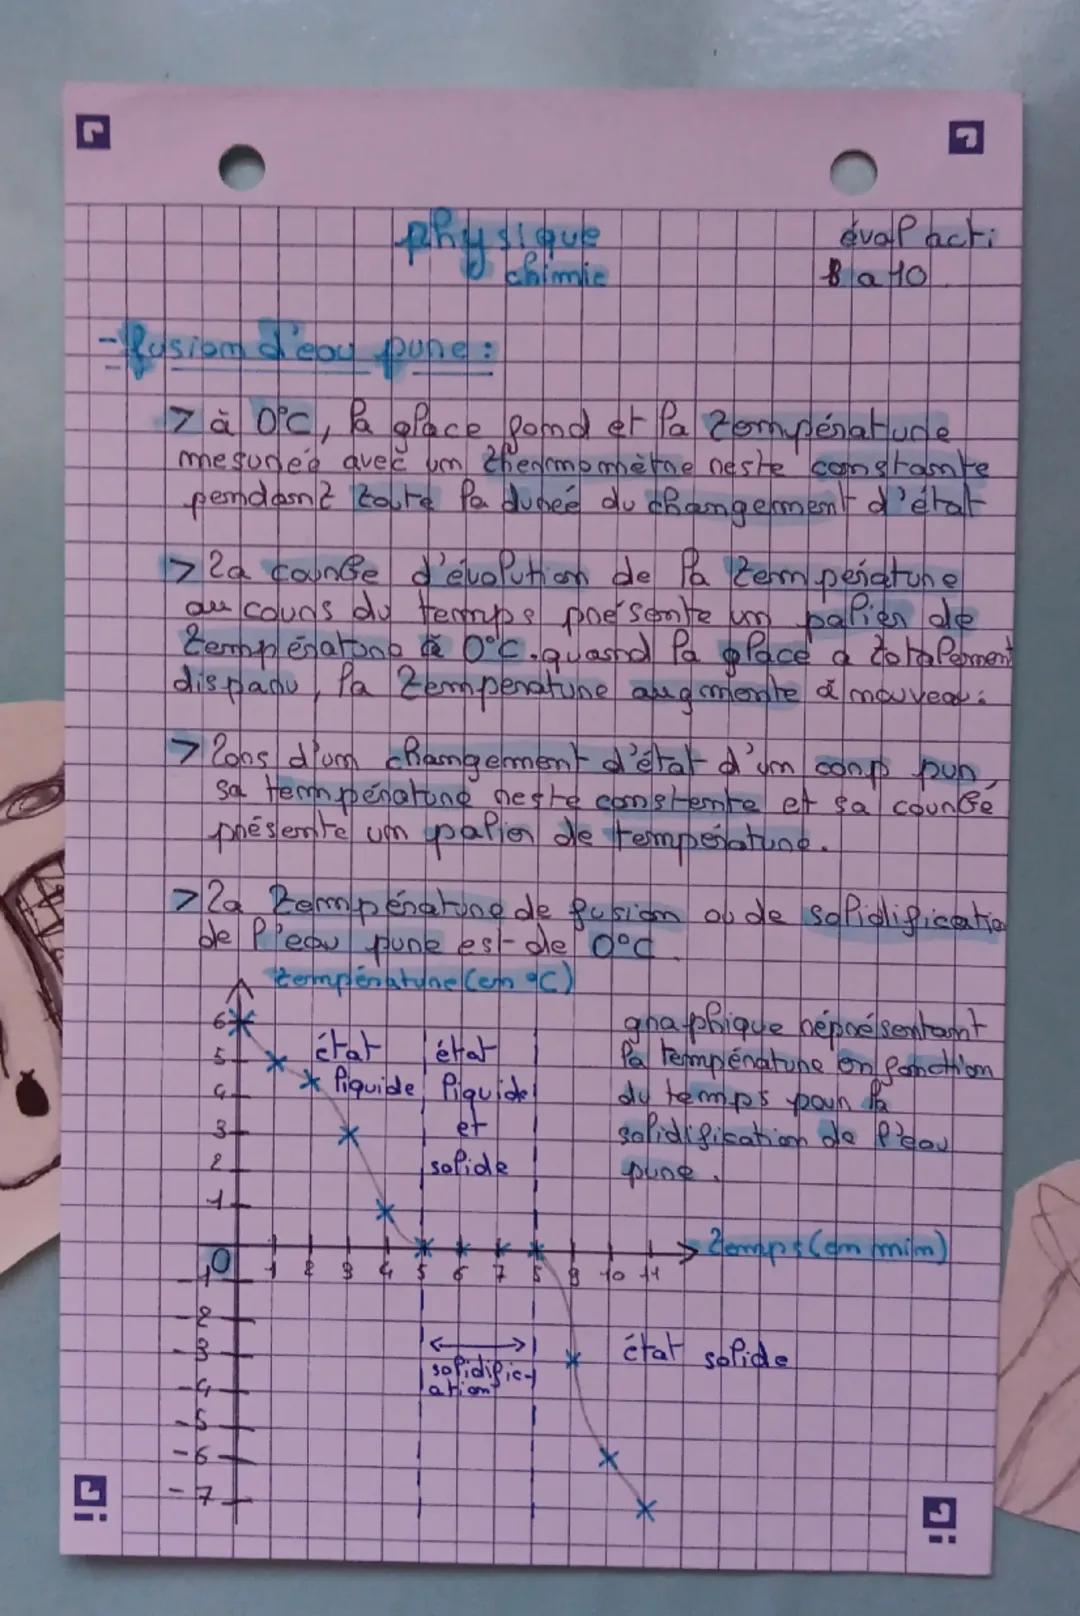 physique
chimie
éval acti
8 a 10
- fusion d'eau pure :
> à 0°C, la glace fond et la température
mesureé avec un thermomètre reste constante
pendant toute la dureé du changement d'état
> La courbe d'évolution de la température
au cours du temps présente un palier de
température à 0°C. quand la glace a totalement
disparu, la température augmente à nouveau.
> lors d'un changement d'état d'un corp pur,
sa température reste constente et sa courbe
présente un palier de température.
> La température de fusion ou de solidification
de l'eau pure est de 0°C
température (en °C)
graphique réprésentant
la température en fonction
du temps pour la
solidification de l'eau
pure.
6
5
4
3
2
1
0
-1
-2
-3
-4
-5
-6
-7
état
liquide
état
liquide
et
solide
1 2 3 4 5 6 7 8 9 10 11
temps (en min)
solidific-
ation
état solide